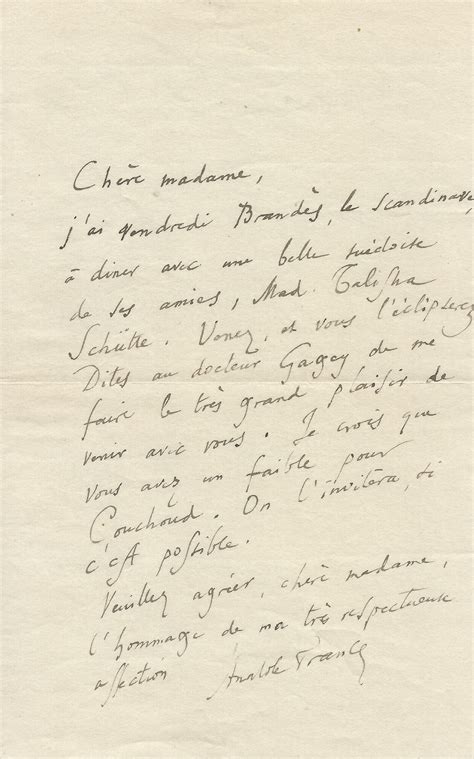 Chère madame,
j'ai vendredi Brandès, le scandinave,
à diner avec une belle suédoise
de ses amies, Mad. Talisha
Schütte. Venez, et vous l'éclipserez
Dites au docteur Gagey de me
faire le très grand plaisir de
venir avec vous. Je crois que
vous avez un faible pour
Couchoud. On l'invitera, si
c'est possible.
Veuillez agréer, chère madame,
l'hommage de ma très respectueuse
affection Anatole France